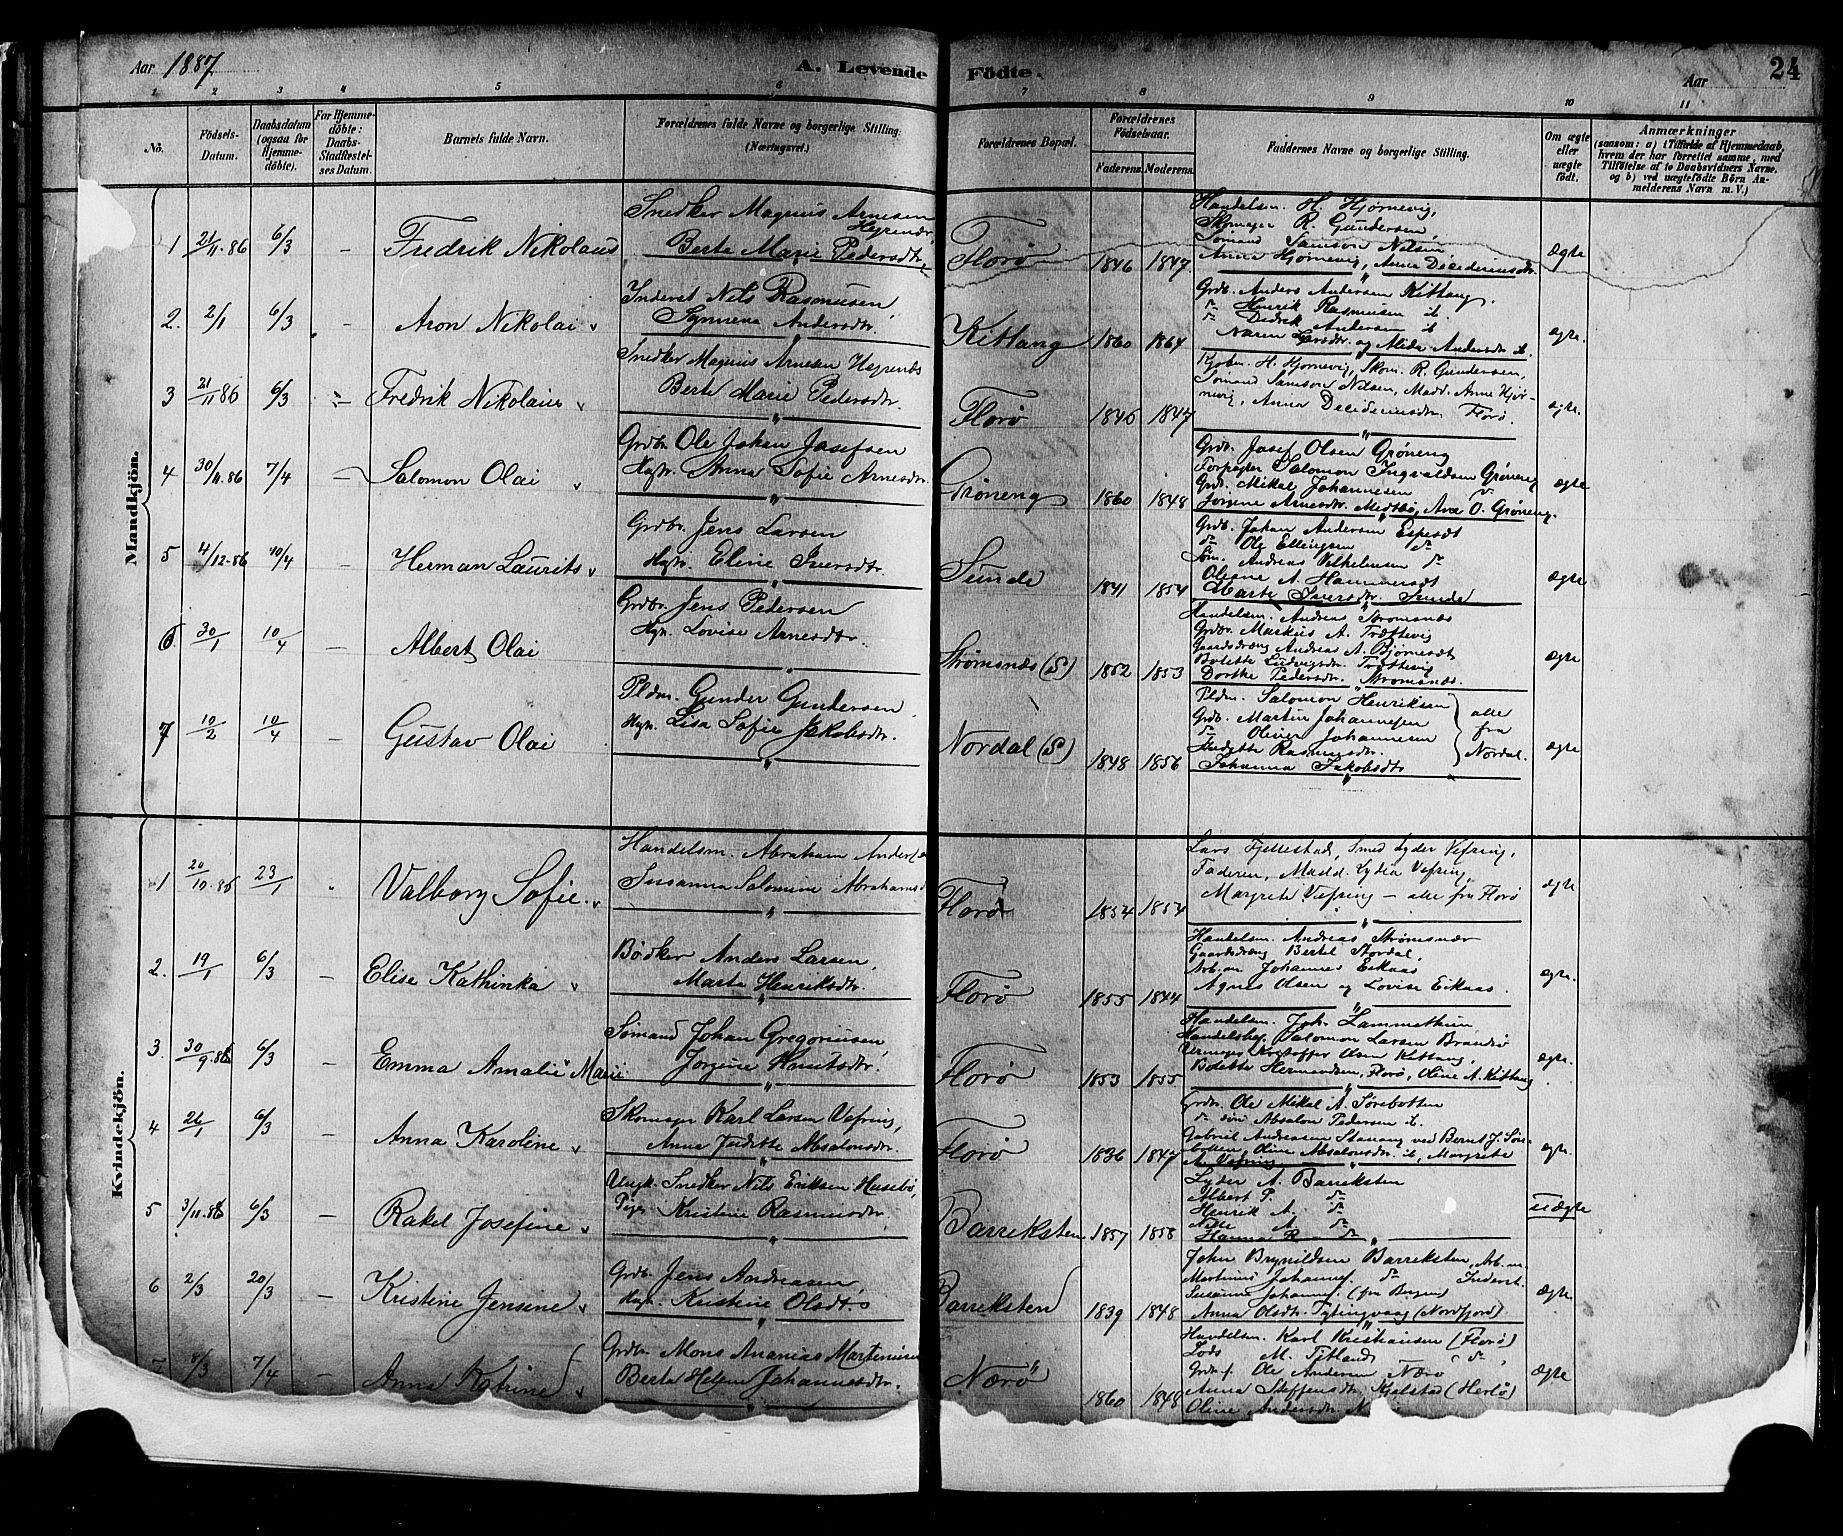 Aar 1887 A. Levende Födte. Aar 24
1 2 3 4 5 6 7 8 9 10 11
No. Födsels-Datum. Daabsdatum (ogsaa for Hjemmedöbte). For Hjemmedöbte: Daabs-Stadfæstelses Datum. Barnets fulde Navn. Forældrenes fulde Navne og borgerlige Stilling: (Næringsvei.) Forældrenes Bopæl. Forældrenes Födselsaar. Faderens. Moderens. Faddernes Navne og borgerlige Stilling. Om ægte eller uægte födt. Anmærkninger (saasom: a) i Tilfælde af Hjemmedaab, hvem der har forrettet samme, med Tilföielse af to Daabsvidners Navne, og b) ved uægtefödte Börn Anmelderens Navn m. V.)
Mandkjön.
1 21/11.86 6/3 - Fredrik Nikolaus
Snedker Magnus Arnesen
Berta Marie Pedersdtr
Florø 1846 1847
Handelsm. H. Hjørnevig,
Skomager R. Gundersen,
Sømand Samson Nilsen
Anna Hjørnevig, Anna
Ægte
2. 2/1 6/3 - Aron Nikolai
Inderst Nils Rasmusen,
Synneva Andersdtr.
Kittang 1860 1864
Grdb. Anders Andersen Kittang.
do Henrik Rasmusen ib.
do Didrik Andersen ib
og Alida Andersdtr ib.
ægte.
3 21/11 86 6/3 Fredrik Nikolaus
Snedker Magnus Arnesen
Berte Marie Pedersdtr.
Florø 1846 1847
Kjøbm. H. Hjørnevig, Skom. R. Gundersen,
Sømand Samson Nilsen, Mad. Anne Hjør-
nevig, Anna Florø.
ægte.
4 30/11.86 7/4 - Salomon Olai
Grdbr Ole Johan Josefsen
Hustr. Anna Sofie Arnesdtr.
Grøneng 1860 1848
Grdb. Josef Olsen Grøneng
Forpagter Salomon Ingvaldsen Grøneng
Grdb. Mikal Johannesen
Jørgine Arnesdtr. O. Grøneng.
ægte
5 4/12.86 10/4 - Herman Laurits
Grdbr. Jens Larsen
Hustr. Eline Iversdtr.
Sunde 1841 1854
Grdb. Johan Andersen
do Ole Ellingsen do
Andreas Vilhelmsen do
Oleane A.
Marte Iversdtr. Sunde
Ægte
6 30/1 10/4 - Albert Olai
Grdbr. Jens Pedersen
Lovise Arnesdtr.
Strømsnæs (S) 1852 1853
Handelsm. Andreas Strømsnæs
Grdbr. Markus A. Trættevig
Gaardsdreng Andreas A.
Bolette Ludvigsdtr. Trættevig
Dorthe Pedersdtr. Strømsnæs.
Ægte
7 10/2 10/4 - Gustav Olai
Pldm. Gunder Gundersen,
Lisa Sofie Jakobsdtr.
Nordal (S) 1848 1856
Pldm. Salomon Henriksen
Grdb. Martin Johannesen
do Oliver Johannesen
Rasmusdtr.
Johanna Jakobsdtr
alle fra Nordal.
Ægte
Kvindekjön.
1 20/10.86 23/1 Valborg Sofie
Handelsm. Abraham
Susanna Salomine Abrahamsd
Florø 1854 1854
Lars Fjellestad, Smed Lyder Vefring,
Faderen, Madd. Lydia Vefring,
Margrete Vefring - alle fra Florø
ægte
2. 19/1 6/3 - Elise Kathinka
Bødker Anders Larsen,
Marta Henriksdtr.
Florø 1855 1844
Handelsm. Andreas Strømsnæs
Gaardsdreng Bertel Stordal,
Arb.m. Johannes Eikaas
Agnes Olsen og Lovise Eikaas.
ægte.
3. 30/9.86 6/3 - Emma Amalie Marie
Sømand Johan Gregoriusen,
Jørgine Hansdtr.
Florø 1853 1855
Handelsm. Joh. Lammethun
Salomon Larsen Brandsø
Kristoffer Olsen Kittang,
Bolette Hermansen, Florø, Oline A. Kittang
ægte.
4 26/1 6/3 - Anna Karoline
Skomager Karl Larsen Vefring,
Anna Judithe Absalonsdtr.
Florø 1836 1847
Grdbr. Ole Mikal A. Sørebotten
do Absalon Pedersen ib.
Gabriel Andreasen Stavang ved Bernt J. Søre-
botten, Oline Absalonsdtr. ib, Margrete
A. Vefring
ægte.
5 3/11.86 6/3 - Rakel Josefine
Ungk. Snedker Nils Eriksen Husebø,
Pige Kristine Rasmusdtr.
Barreksten 1857 1858
Lyder A. Barreksten
Albert P. do
Henrik A. do
A. do
Hanna R. do
uægte
6 2/3 20/3 - Kristine Jensine
Grdb. Jens Andreasen
Kristine Olsdtr.
Barreksten 1839 1848
John Brynildsen Barreksten, Arb.m.
Martinus do Inderst
(fra Bergen)
Anna Olsdtr. (Nordfjord)
Ægte
7 8/3 7/4 - Anna Katrine
Grdbr. Mons Ananias
Berte Helene Johannesdtr.
Nærø 1860 1848
Handelsm. Karl Kristiansen (Florø)
Lods M. do
Grdbr. Ole Andersen Nærø
Anna Steffensdtr. (Herlø)
Oline Andersdtr.
Ægte